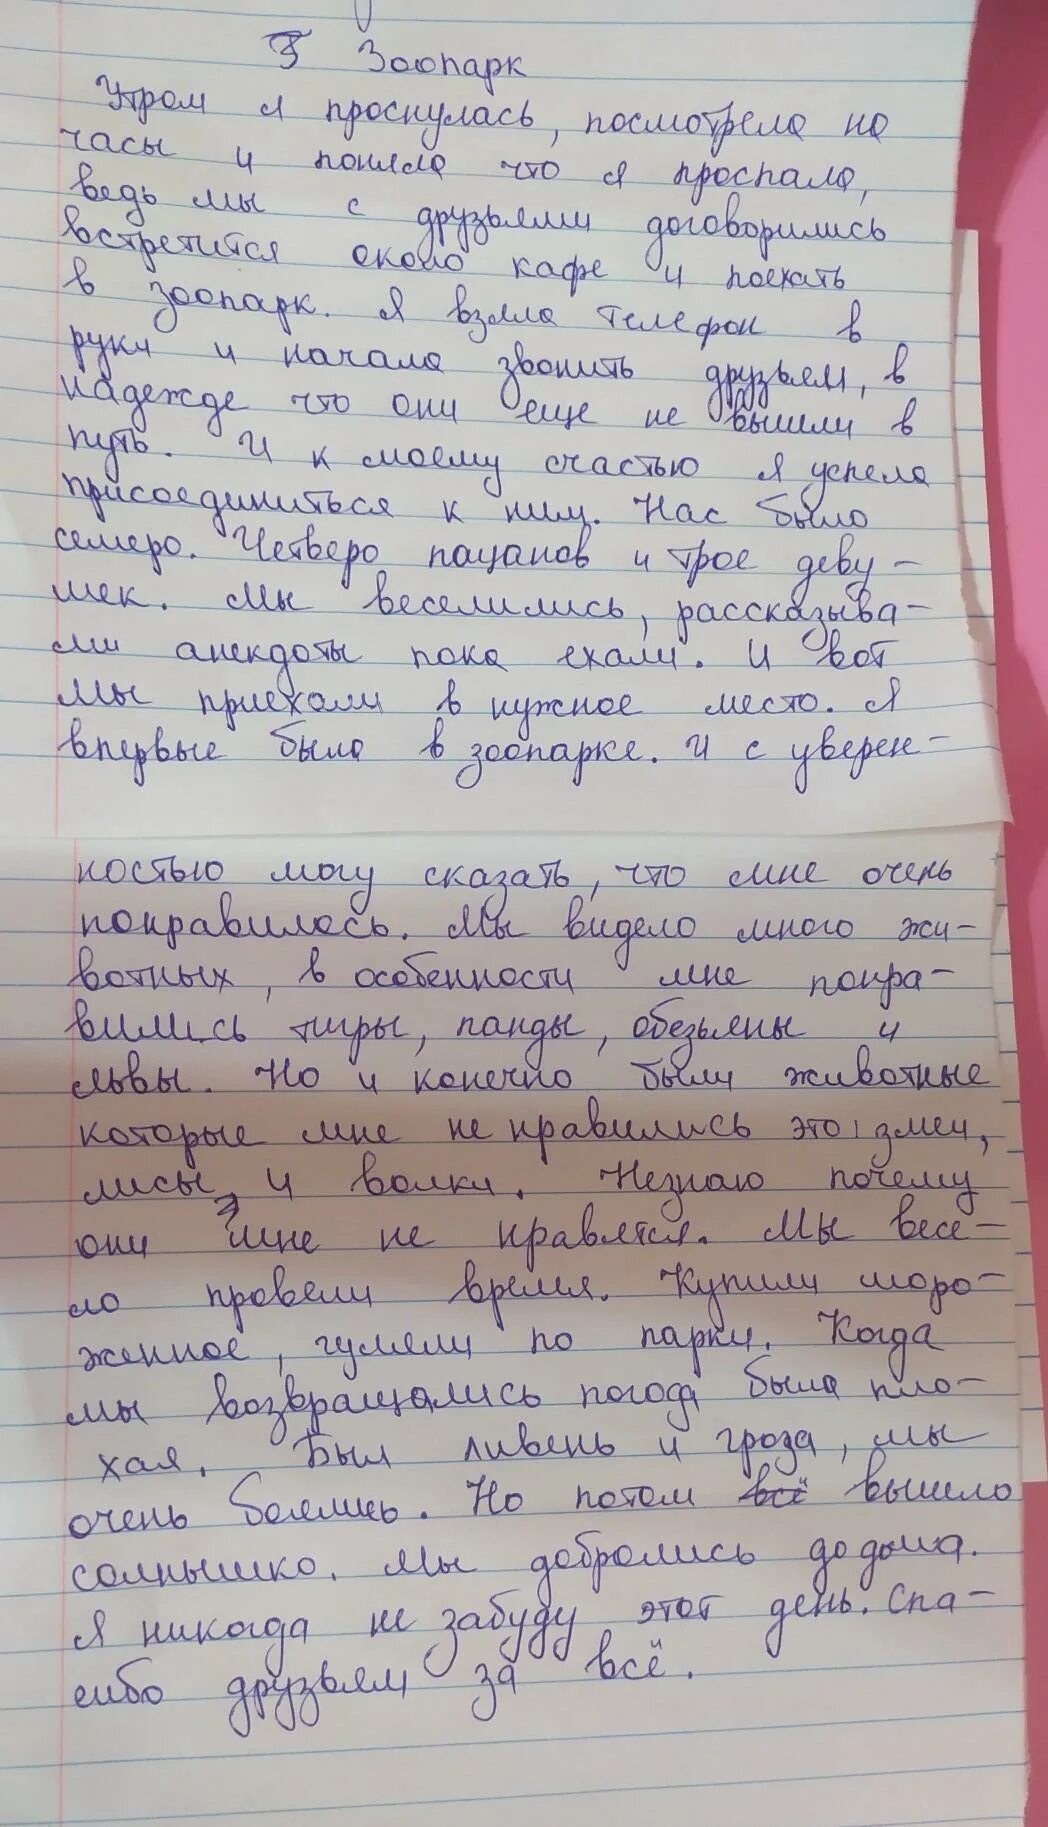 Зоопарк
Утром я проснулась, посмотрела на
часы и поняла что я проспала,
ведь мы с друзьями договорились
встретится около кафе и поехать
в зоопарк. Я взяла телефон в
руки и начала звонить друзьям, в
надежде что они еще не вышли в
путь. И к моему счастью я успела
присоединиться к ним. Нас было
семеро. Четверо пацанов и трое деву-
шек. Мы веселились, рассказыва-
ли анекдоты пока ехали. И вот
мы приехали в нужное место. Я
впервые была в зоопарке. И с уверен-
ностью могу сказать, что мне очень
понравилось. Мы видело много жи-
вотных, в особенности мне понра-
вились тигры, панды, обезьяны и
львы. Но и конечно были животные
которые мне не нравились это: змеи,
лисы и волки. Незнаю почему
они мне не нравятся. Мы весе-
ло провели время. Купили моро-
женное, гуляли по парки. Когда
мы возвращались погода была пло-
хая. Был ливень и гроза, мы
очень боялись. Но потом всё вышло
солнышко. Мы добрались до дома.
Я никогда не забуду этот день. Спа-
сибо друзьям за всё.